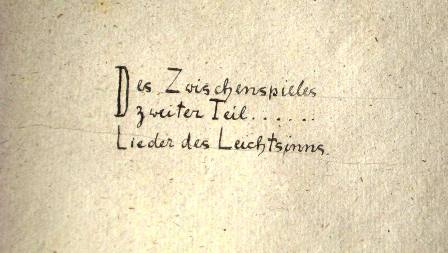 Des Zwischenspieles
zweiter Teil.......
Lieder des Leichtsinns.